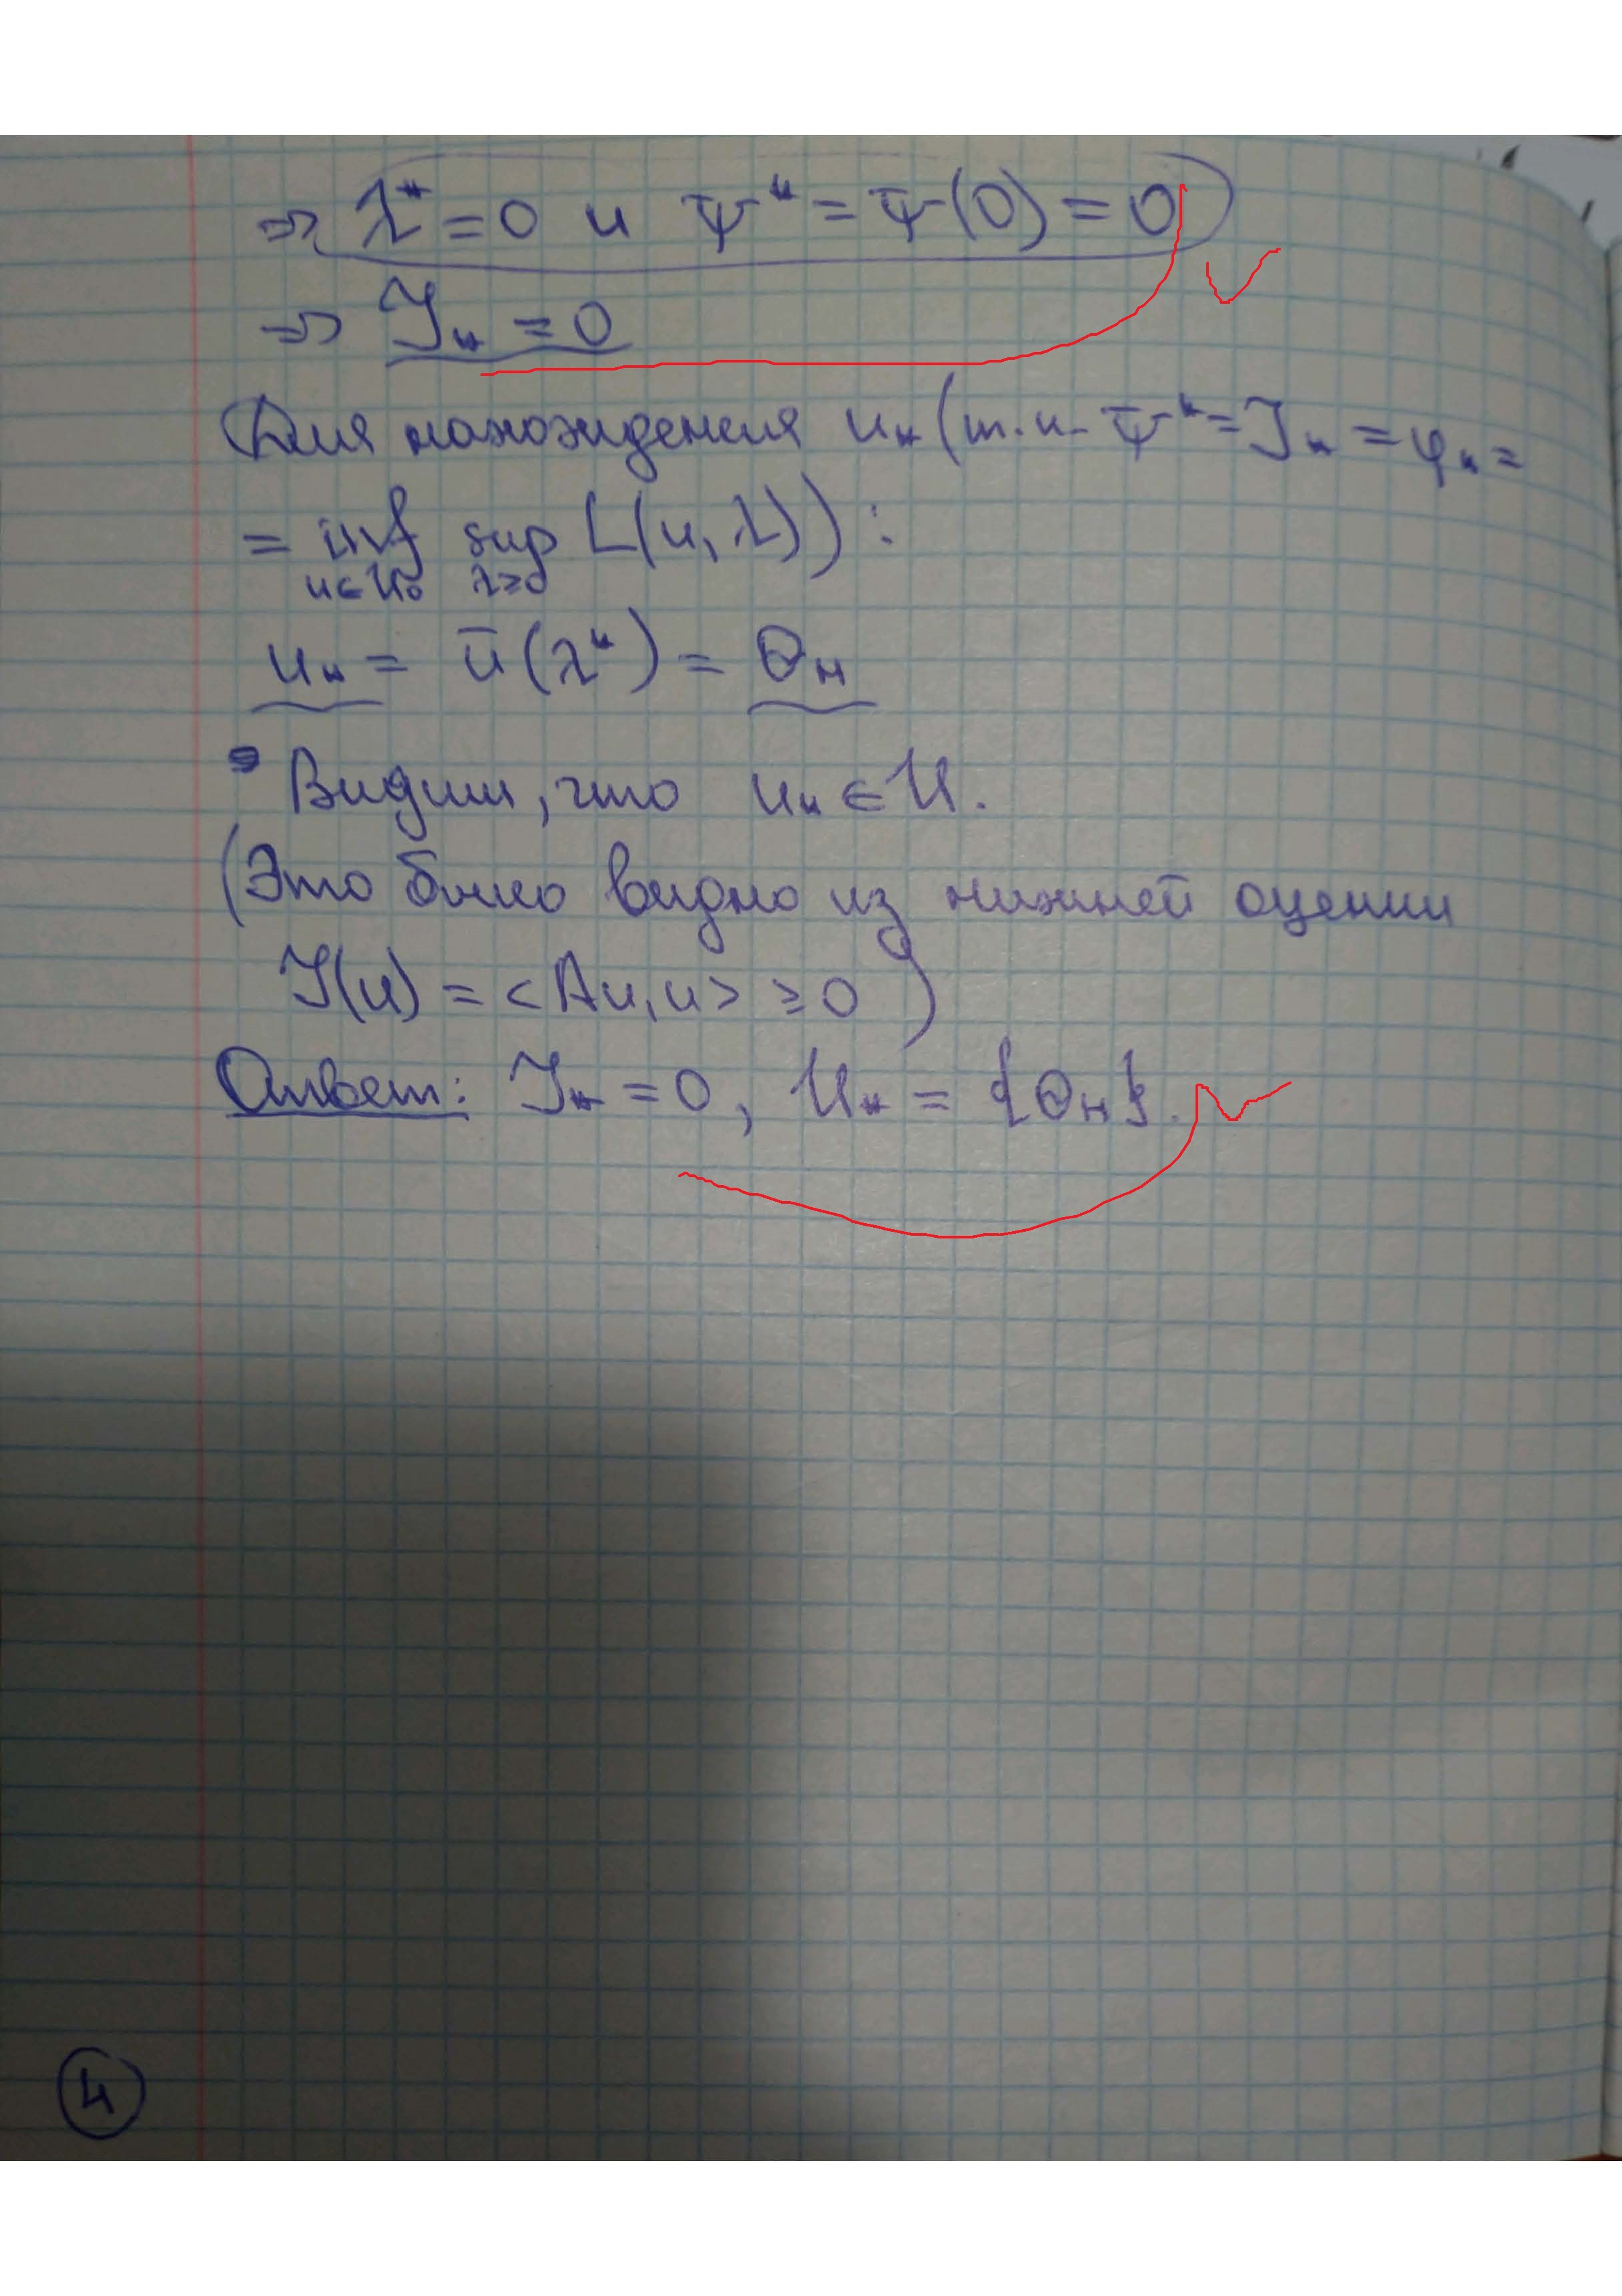 ⇒ λ* = 0 и ψ* = ψ(0) = 0
⇒ J* = 0
Для нахождения u* (т.к. ψ* = J* = φ* =
= inf sup L(u, λ)):
u∈U₀ λ≥0
u* = ū(λ*) = Θ_H
Видим, что u* ∈ U.
(Это было видно из нижней оценки
J(u) = <Au, u> ≥ 0)
Ответ: J* = 0, U* = {Θ_H}.
4